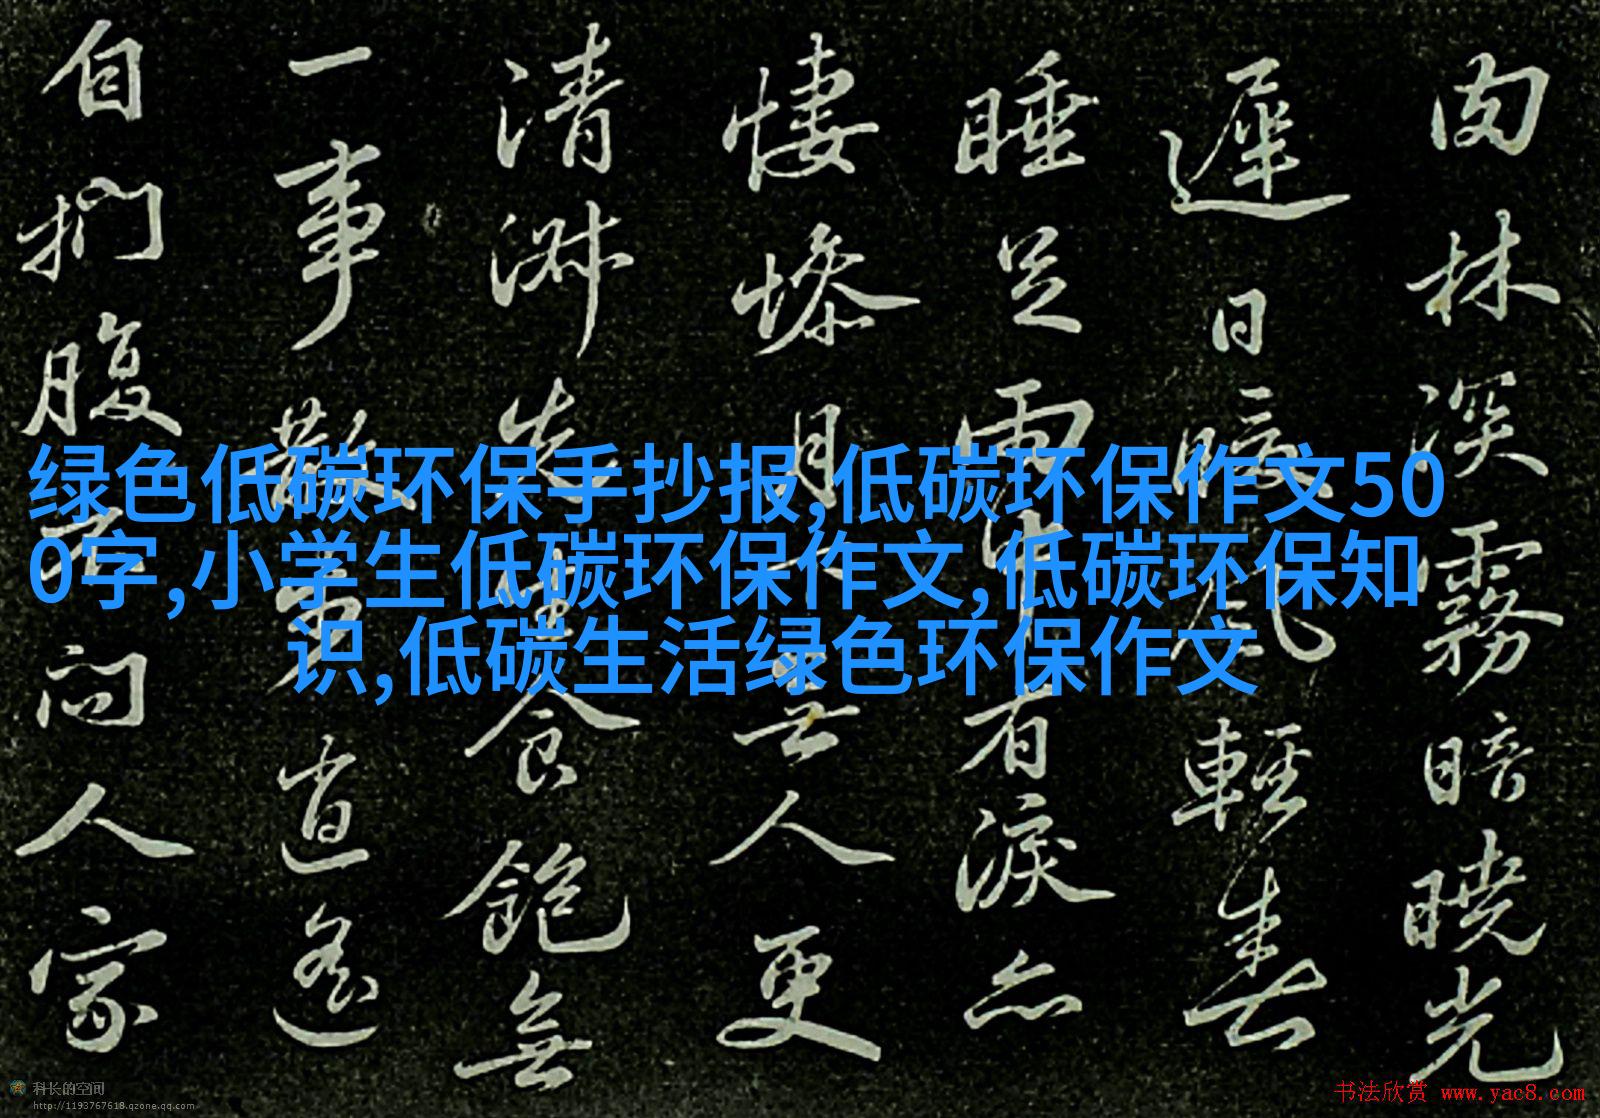 肉林深霧暗曉光
遲日暖風輕春
睡足雨中有淚亦
悽慘月下無人更
清淑先生食飽無
一事散步逍遙
自捫腹不問人家
绿色低碳环保手抄报,低碳环保作文50
0字,小学生低碳环保作文,低碳环保知
识,低碳生活绿色环保作文
科长的空间
http://1193767618.qzone.qq.com
书法欣赏 www.yac8.com